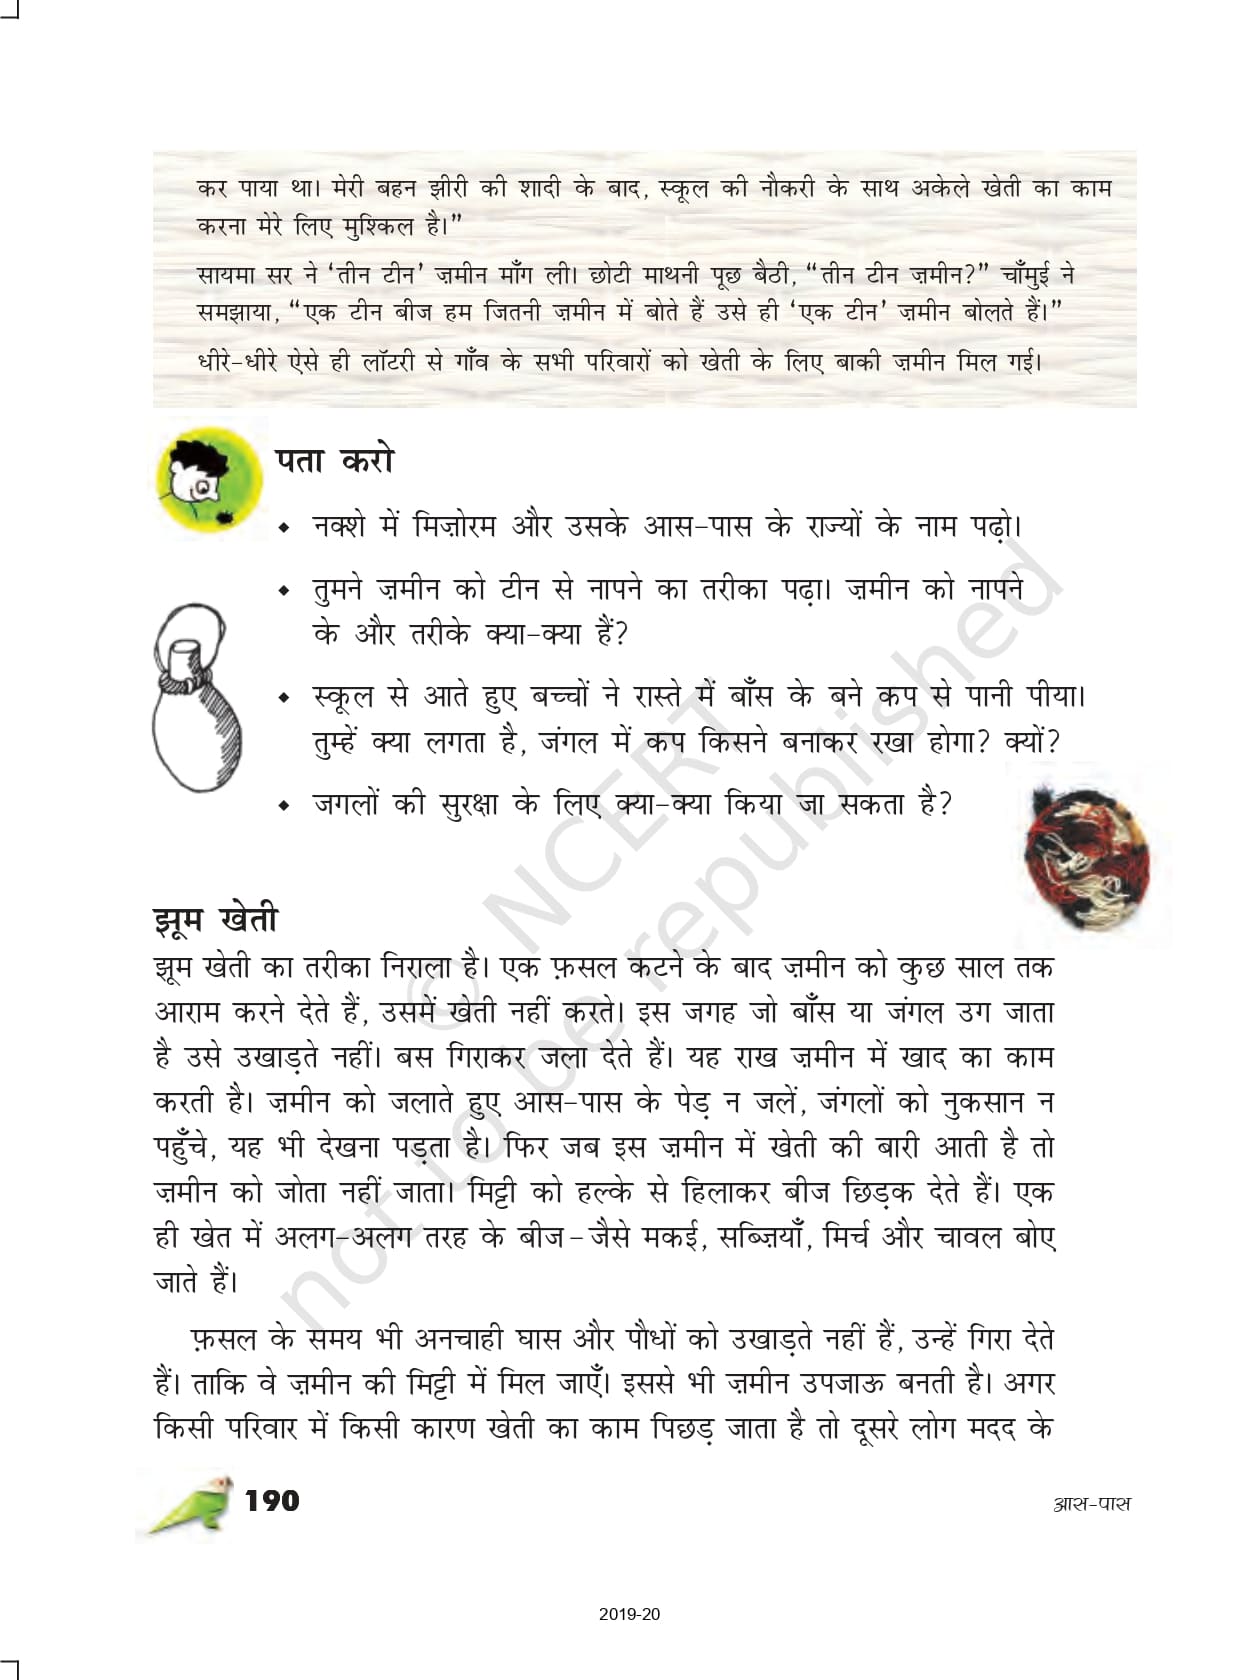 कर पाया था। मेरी बहन झीरी की शादी के बाद, स्कूल की नौकरी के साथ अकेले खेती का काम
करना मेरे लिए मुश्किल है।”
सायमा सर ने ‘तीन टीन’ ज़मीन माँग ली। छोटी माथनी पूछ बैठी, “तीन टीन ज़मीन?” चाँमुई ने
समझाया, “एक टीन बीज हम जितनी ज़मीन में बोते हैं उसे ही ‘एक टीन’ ज़मीन बोलते हैं।”
धीरे-धीरे ऐसे ही लॉटरी से गाँव के सभी परिवारों को खेती के लिए बाकी ज़मीन मिल गई।
पता करो
◆ नक्शे में मिज़ोरम और उसके आस-पास के राज्यों के नाम पढ़ो।
◆ तुमने ज़मीन को टीन से नापने का तरीका पढ़ा। ज़मीन को नापने
के और तरीके क्या-क्या हैं?
◆ स्कूल से आते हुए बच्चों ने रास्ते में बाँस के बने कप से पानी पीया।
तुम्हें क्या लगता है, जंगल में कप किसने बनाकर रखा होगा? क्यों?
◆ जगलों की सुरक्षा के लिए क्या-क्या किया जा सकता है?
झूम खेती
झूम खेती का तरीका निराला है। एक फ़सल कटने के बाद ज़मीन को कुछ साल तक
आराम करने देते हैं, उसमें खेती नहीं करते। इस जगह जो बाँस या जंगल उग जाता
है उसे उखाड़ते नहीं। बस गिराकर जला देते हैं। यह राख ज़मीन में खाद का काम
करती है। ज़मीन को जलाते हुए आस-पास के पेड़ न जलें, जंगलों को नुकसान न
पहुँचे, यह भी देखना पड़ता है। फिर जब इस ज़मीन में खेती की बारी आती है तो
ज़मीन को जोता नहीं जाता। मिट्टी को हल्के से हिलाकर बीज छिड़क देते हैं। एक
ही खेत में अलग-अलग तरह के बीज – जैसे मकई, सब्ज़ियाँ, मिर्च और चावल बोए
जाते हैं।
फ़सल के समय भी अनचाही घास और पौधों को उखाड़ते नहीं हैं, उन्हें गिरा देते
हैं। ताकि वे ज़मीन की मिट्टी में मिल जाएँ। इससे भी ज़मीन उपजाऊ बनती है। अगर
किसी परिवार में किसी कारण खेती का काम पिछड़ जाता है तो दूसरे लोग मदद के
190
आस-पास
2019-20
© NCERT
not to be republished